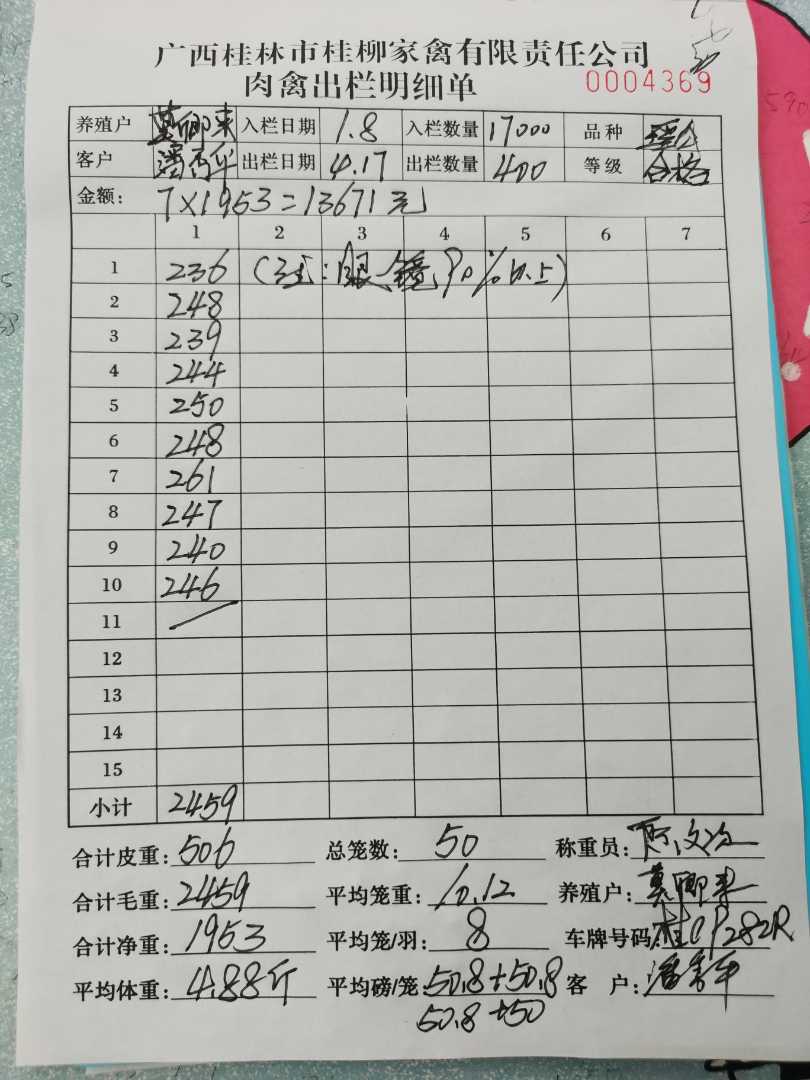 广西桂林市桂柳家禽有限责任公司
肉禽出栏明细单 0004369
养殖户 莫卿来 入栏日期 1.8 入栏数量 17000 品种
客户 潘青平 出栏日期 4.17 出栏数量 400 等级 合格
金额: 7×1953=13671元
1 2 3 4 5 6 7
1 236 (注:眼镜90%以上)
2 248
3 239
4 244
5 250
6 248
7 261
8 247
9 240
10 246
11
12
13
14
15
小计 2459
合计皮重: 506 总笼数: 50 称重员:
合计毛重: 2459 平均笼重: 10.12 养殖户: 莫卿来
合计净重: 1953 平均笼/羽: 8 车牌号码: 桂CP282R
平均体重: 4.88斤 平均磅/笼: 50.8+50.8 客户: 潘青平
50.8+50